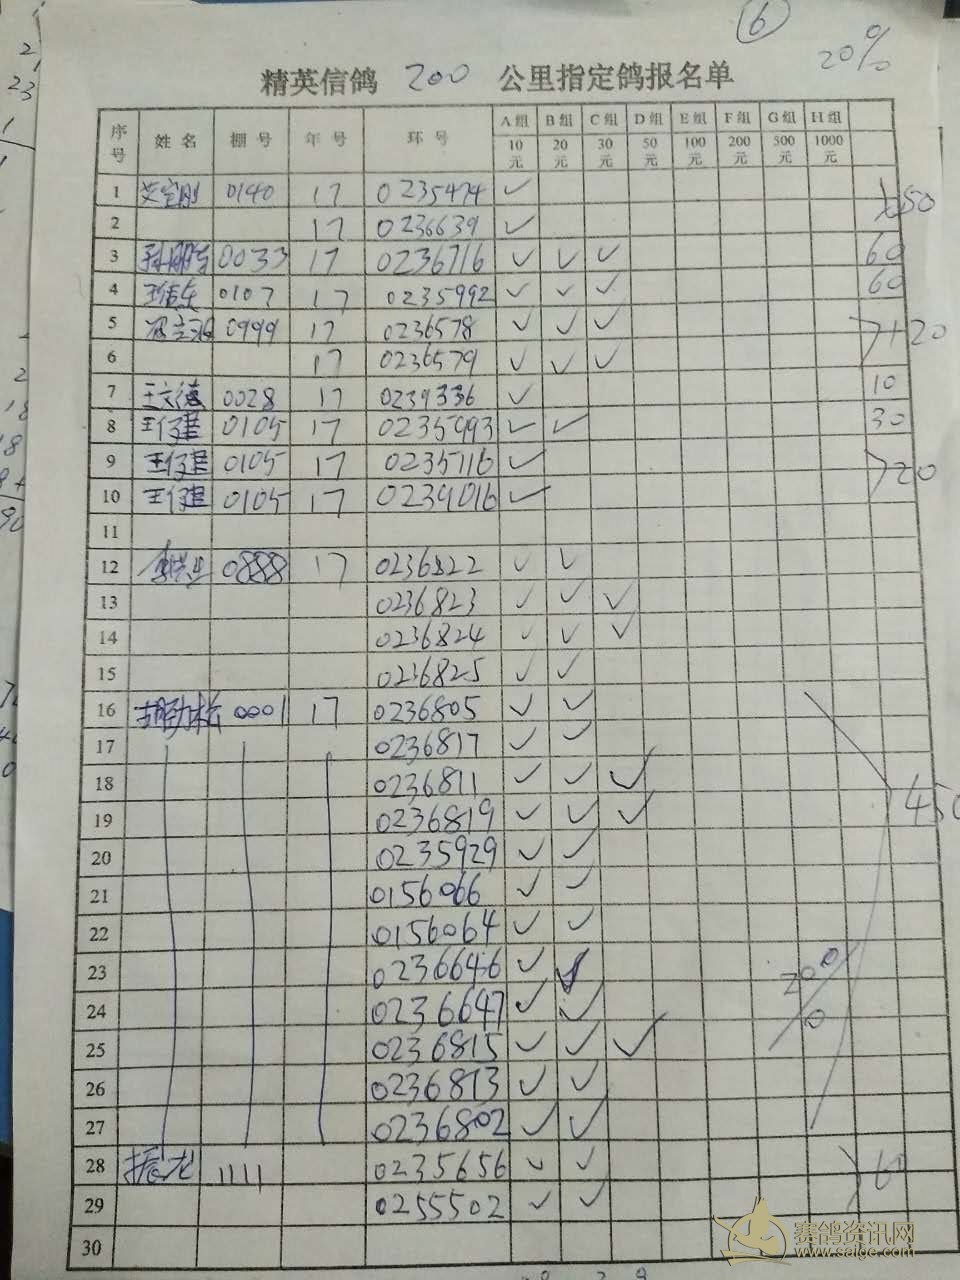 6
20%
精英信鸽 200 公里指定鸽报名单
序号 姓名 棚号 年号 环号 A组 B组 C组 D组 E组 F组 G组 H组
10元 20元 30元 50元 100元 200元 500元 1000元
1 0140 17 0235474 ✓
2 17 0236639 ✓ 50
3 0033 17 0236716 ✓ ✓ ✓ 60
4 0107 17 0235992 ✓ ✓ ✓ 60
5 0999 17 0236578 ✓ ✓ ✓ 120
6 17 0236579 ✓ ✓ ✓
7 王文德 0028 17 0239336 ✓ 10
8 王仔君 0105 17 0235993 ✓ ✓ 30
9 王仔君 0105 17 0235716 ✓ 20
10 王仔君 0105 17 0239016 ✓
11
12 0888 17 0236822 ✓ ✓
13 0236823 ✓ ✓ ✓
14 0236824 ✓ ✓ ✓
15 0236825 ✓ ✓
16 胡劲松 0001 17 0236805 ✓ ✓
17 0236817 ✓ ✓
18 0236811 ✓ ✓ ✓
19 0236819 ✓ ✓ ✓ 450
20 0235929 ✓ ✓
21 0156066 ✓ ✓
22 0156064 ✓ ✓
23 0236646 ✓ ✓ 20%
24 0236647 ✓ ✓
25 0236815 ✓ ✓ ✓
26 0236813 ✓ ✓
27 0236802 ✓ ✓
28 振龙 1111 0235656 ✓ ✓ 60
29 0255502 ✓ ✓
30
赛鸽资讯网
www.saige.com